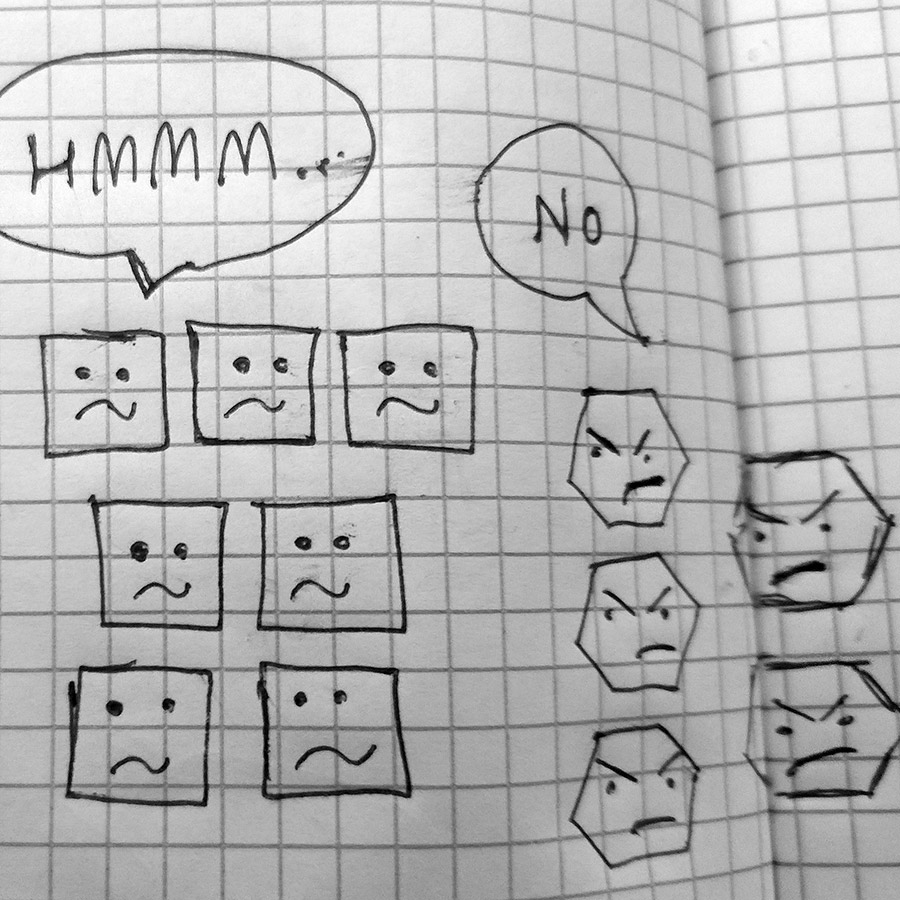 HMMM...
No